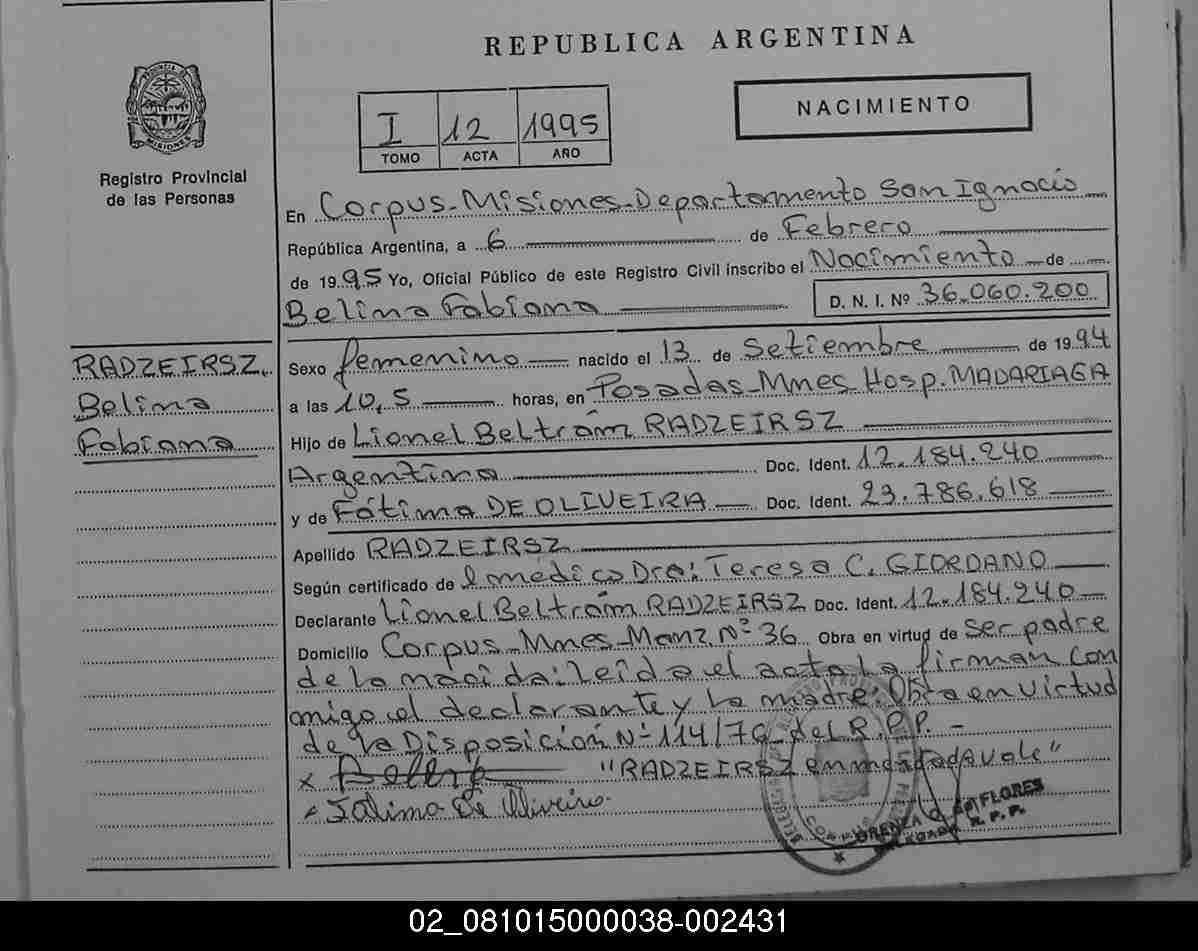 REPUBLICA ARGENTINA
PROVINCIA DE
MISIONES
Registro Provincial
de las Personas
I 12 1995
TOMO ACTA AÑO
NACIMIENTO
En Corpus-Misiones-Departamento San Ignacio
República Argentina, a 6 de Febrero
de 1995 Yo, Oficial Público de este Registro Civil inscribo el Nacimiento de
Belina Fabiana D. N. I. Nº 36.060.200
RADZEIRSZ,
Belina
Fabiana
Sexo femenino nacido el 13 de Setiembre de 1994
a las 10,5 horas, en Posadas-Mnes Hosp. MADARIAGA
Hijo de Lionel Beltrám RADZEIRSZ
Argentina Doc. Ident. 12.184.240
y de Fátima DE OLIVEIRA Doc. Ident. 23.786.618
Apellido RADZEIRSZ
Según certificado de l médico Dra: Teresa C. GIORDANO
Declarante Lionel Beltrám RADZEIRSZ Doc. Ident. 12.184.240
Domicilio Corpus-Mnes-Manz Nº 36 Obra en virtud de ser padre
de la nacida: leida el acta la firman con
migo el declarante y la madre. Obra en virtud
de la Disposición Nº 114/70 del R.P.P.-
x "RADZEIRSZ enmendado vale"
x Fatima De Oliveira
FLORES
R. P. P.
02_081015000038-002431